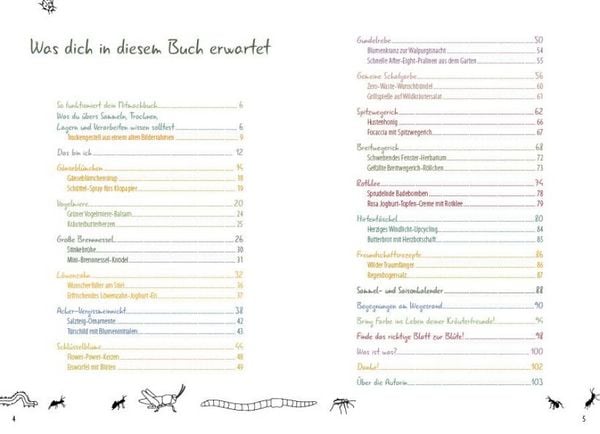 Was dich in diesem Buch erwartet
So funktioniert dein Mitmachbuch 6
Was du übers Sammeln, Trocknen,
Lagern und Verarbeiten wissen solltest 6
Trockengestell aus einem alten Bilderrahmen 9
Das bin ich 12
Gänseblümchen 14
Gänseblümchensirup 18
Schüttel-Spray fürs Klopapier 19
Vogelmiere 20
Grüner Vogelmiere-Balsam 24
Kräuterbutterherzen 25
Große Brennnessel 26
Stinkebrühe 30
Mini-Brennnessel-Knödel 31
Löwenzahn 32
Wunscherfüller am Stiel 36
Erfrischendes Löwenzahn-Joghurt-Eis 37
Acker-Vergissmeinnicht 38
Salzteig-Ornamente 42
Türschild mit Blumenstempeln 43
Schlüsselblume 44
Flower-Power-Kerzen 48
Eiswürfel mit Blüten 49
4
Gundelrebe 50
Blumenkranz zur Walpurgisnacht 54
Schnelle After-Eight-Pralinen aus dem Garten 55
Gemeine Schafgarbe 56
Zero-Waste-Wunschbündel 60
Grillspieße auf Wildkräutersalat 61
Spitzwegerich 62
Hustenhonig 66
Focaccia mit Spitzwegerich 67
Breitwegerich 68
Schwebendes Fenster-Herbarium 72
Gefüllte Breitwegerich-Röllchen 73
Rotklee 74
Sprudelnde Badebomben 78
Rosa Joghurt-Topfen-Creme mit Rotklee 79
Hirtentäschel 80
Herziges Windlicht-Upcycling 84
Butterbrot mit Herzbotschaft 85
Freundschaftsrezepte 86
Wilder Traumfänger 86
Regenbogensalz 87
Sammel- und Saisonkalender 88
Begegnungen am Wegesrand 90
Bring Farbe ins Leben deiner Kräuterfreunde! 94
Finde das richtige Blatt zur Blüte! 98
Was ist was? 100
Danke! 102
Über die Autorin 103
5